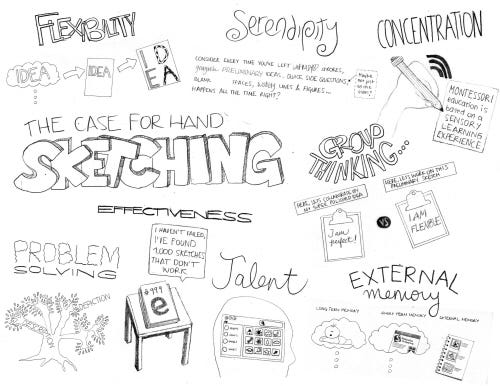 FLEXIBILITY
IDEA
IDEA
ID
EA
Serendipity
CONSIDER EVERY TIME YOU'VE LEFT UNFINISHED STROKES,
PRELIMINARY IDEAS, QUICK SIDE QUESTIONS,
BLANK SPACES, WOBBLY LINES & FIGURES...
HAPPENS ALL THE TIME RIGHT?
CONCENTRATION
MONTESSORI
EDUCATION IS
BASED ON A
SENSORY
LEARNING
EXPERIENCE.
THE CASE FOR HAND
SKETCHING
EFFECTIVENESS
GROUP
THINKING...
HERE, LETS COLLABORATE ON
MY SUPER POLISHED IDEA
I am
perfect!
VS
HERE, LETS WORK ON THIS
PRELIMINARY SKETCH
I AM
FLEXIBLE
PROBLEM
SOLVING
I HAVEN'T FAILED,
I'VE FOUND
9,000 SKETCHES
THAT DON'T
WORK
#999
e
Talent
EXTERNAL
memory
LONG TERM MEMORY
SHORT TERM MEMORY
EXTERNAL MEMORY